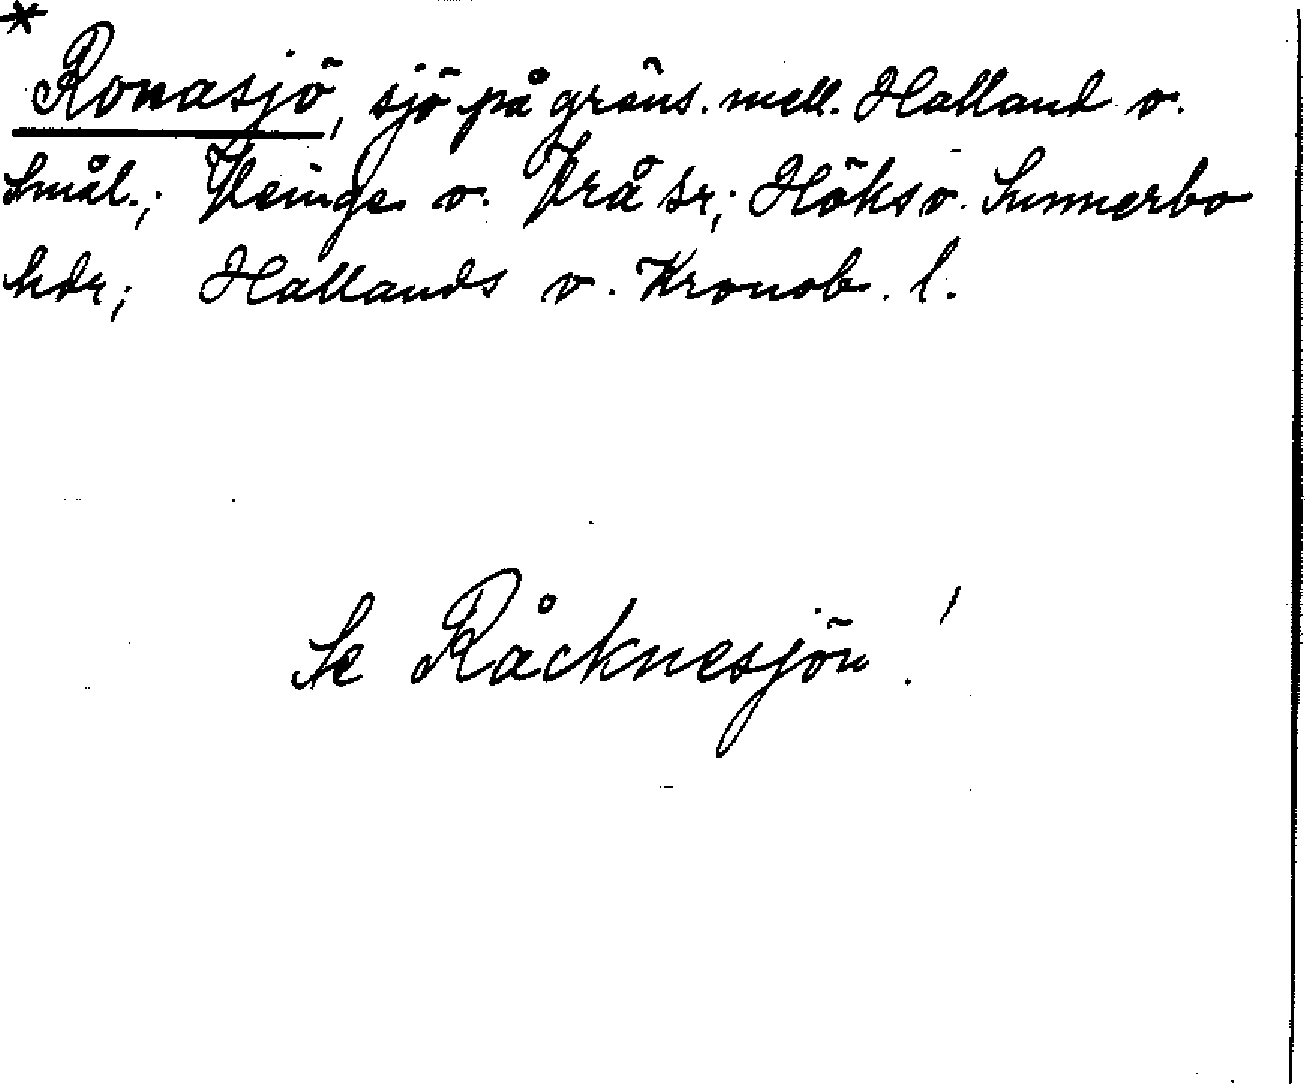 * Ronasjö, sjö på gräns. mell. Halland o.
Smål.; Veinge o. Vrå sr; Höks o. Sunnerbo
hdr; Hallands o. Kronob. l.
Se Råcknesjön!